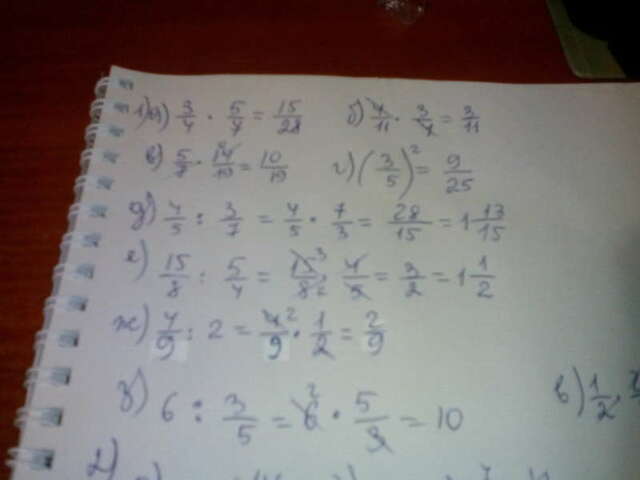 1) а) 3/4 · 5/7 = 15/28 б) 4/11 · 3/4 = 3/11
в) 5/7 · 14/19 = 10/19 г) (3/5)² = 9/25
д) 4/5 : 3/7 = 4/5 · 7/3 = 28/15 = 1 13/15
е) 15/8 : 5/4 = 15 3/8 2 · 4/5 = 3/2 = 1 1/2
ж) 4/9 : 2 = 4 2/9 · 1/2 = 2/9
з) 6 : 3/5 = 6 2 · 5/3 = 10 в) 1/2
2)